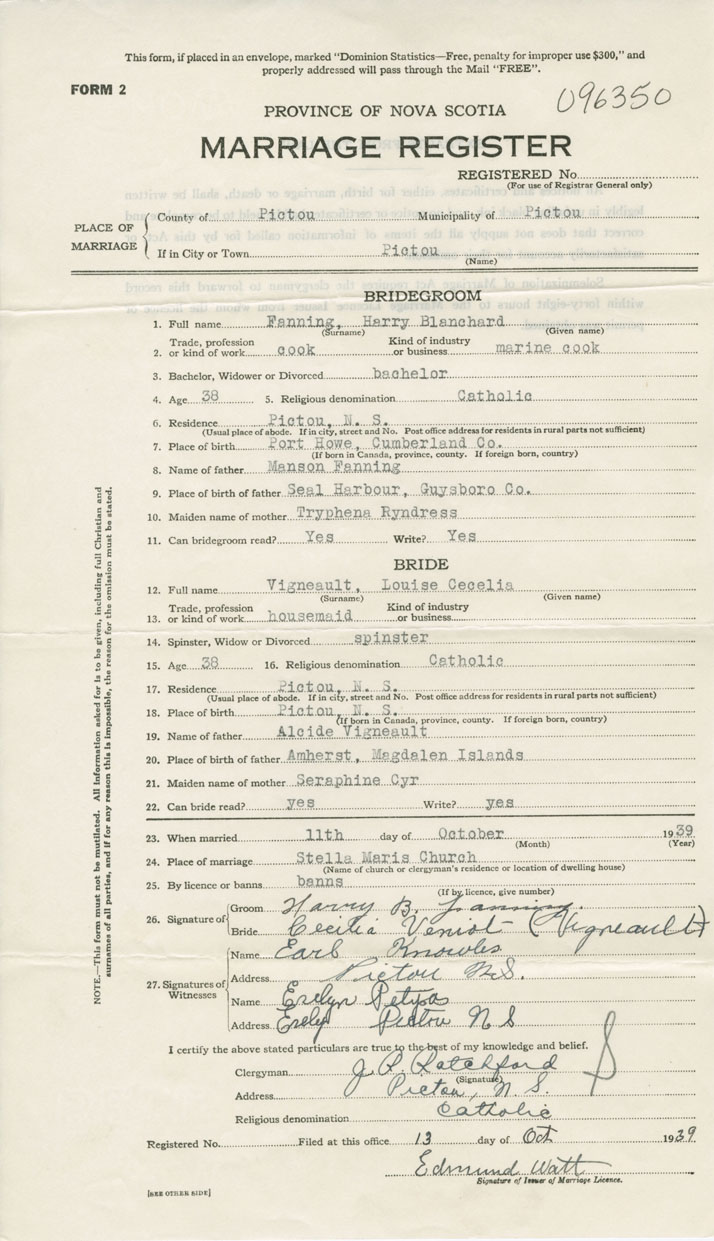 This form, if placed in an envelope, marked "Dominion Statistics—Free, penalty for improper use $300," and
properly addressed will pass through the Mail "FREE".
FORM 2
096350
PROVINCE OF NOVA SCOTIA
MARRIAGE REGISTER
REGISTERED No.
(For use of Registrar General only)
PLACE OF MARRIAGE
County of Pictou Municipality of Pictou
If in City or Town Pictou
(Name)
BRIDEGROOM
1. Full name Fanning, Harry Blanchard
(Surname) (Given name)
2. Trade, profession or kind of work cook Kind of industry or business marine cook
3. Bachelor, Widower or Divorced bachelor
4. Age 38 5. Religious denomination Catholic
6. Residence Pictou, N. S.
(Usual place of abode. If in city, street and No. Post office address for residents in rural parts not sufficient)
7. Place of birth Port Howe, Cumberland Co.
(If born in Canada, province, county. If foreign born, country)
8. Name of father Manson Fanning
9. Place of birth of father Seal Harbour, Guysboro Co.
10. Maiden name of mother Tryphena Ryndress
11. Can bridegroom read? Yes Write? Yes
BRIDE
12. Full name Vigneault, Louise Cecelia
(Surname) (Given name)
13. Trade, profession or kind of work housemaid Kind of industry or business
14. Spinster, Widow or Divorced spinster
15. Age 38 16. Religious denomination Catholic
17. Residence Pictou, N. S.
(Usual place of abode. If in city, street and No. Post office address for residents in rural parts not sufficient)
18. Place of birth Pictou, N. S.
(If born in Canada, province, county. If foreign born, country)
19. Name of father Alcide Vigneault
20. Place of birth of father Amherst, Magdalen Islands
21. Maiden name of mother Seraphine Cyr
22. Can bride read? yes Write? yes
23. When married 11th day of October 1939
(Month) (Year)
24. Place of marriage Stella Maris Church
(Name of church or clergyman's residence or location of dwelling house)
25. By licence or banns banns
(If by licence, give number)
26. Signature of
Groom Harry B. Fanning.
Bride Cecilia Veniot (Vigneault)
27. Signatures of Witnesses
Name Earl Knowles
Address Pictou N.S.
Name Evelyn
Address Pictou N S
I certify the above stated particulars are true to the best of my knowledge and belief.
Clergyman J. R. Ratchford
(Signature)
Address Pictou, N. S.
Religious denomination Catholic
Registered No. Filed at this office 13 day of Oct 1939
Edmund Watt
Signature of Issuer of Marriage Licence.
[SEE OTHER SIDE]
NOTE.—This form must not be mutilated. All information asked for is to be given, including full Christian and
surnames of all parties, and if for any reason this is impossible, the reason for the omission must be stated.